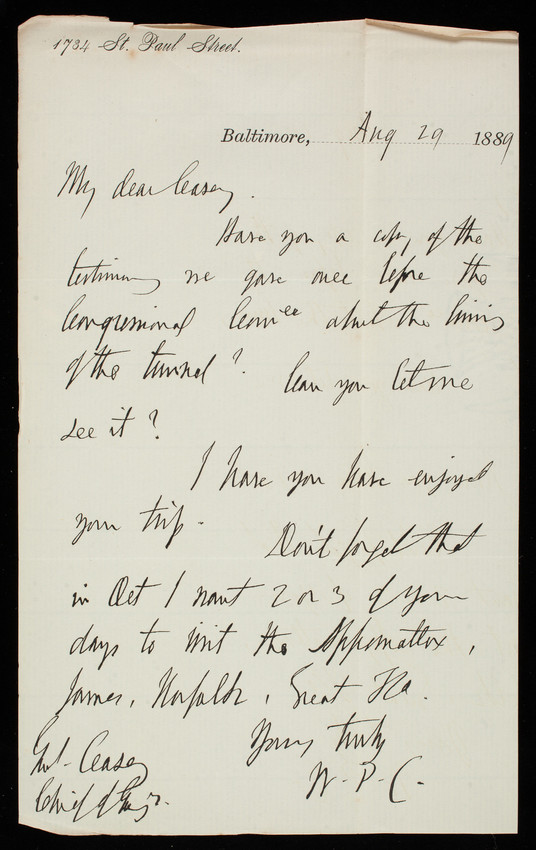 1734 St. Paul Street.
Baltimore, Aug 29 1889
My dear Casey.
Have you a copy of the
testimony we gave once before the
Congressional Comee about the lining
of the tunnel? Can you let me
see it?
I hope you have enjoyed
your trip. Don't forget that
in Oct I want 2 or 3 of your
days to visit the Appomattox,
James, Norfolk,
Yours truly
W. P. C.
Casey
Chief of Engrs.